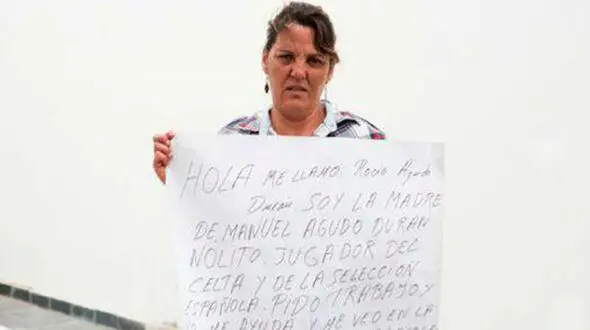 HOLA ME LLAMO Rocio Agudo
Durán SOY LA MADRE
DE, MANUEL AGUDO DURAN
NOLITO. JUGADOR DEL
CELTA Y DE LA SELECCION
ESPAÑOLA. PIDO TRABAJO Y
ME AYUDA Y ME VEO EN LA